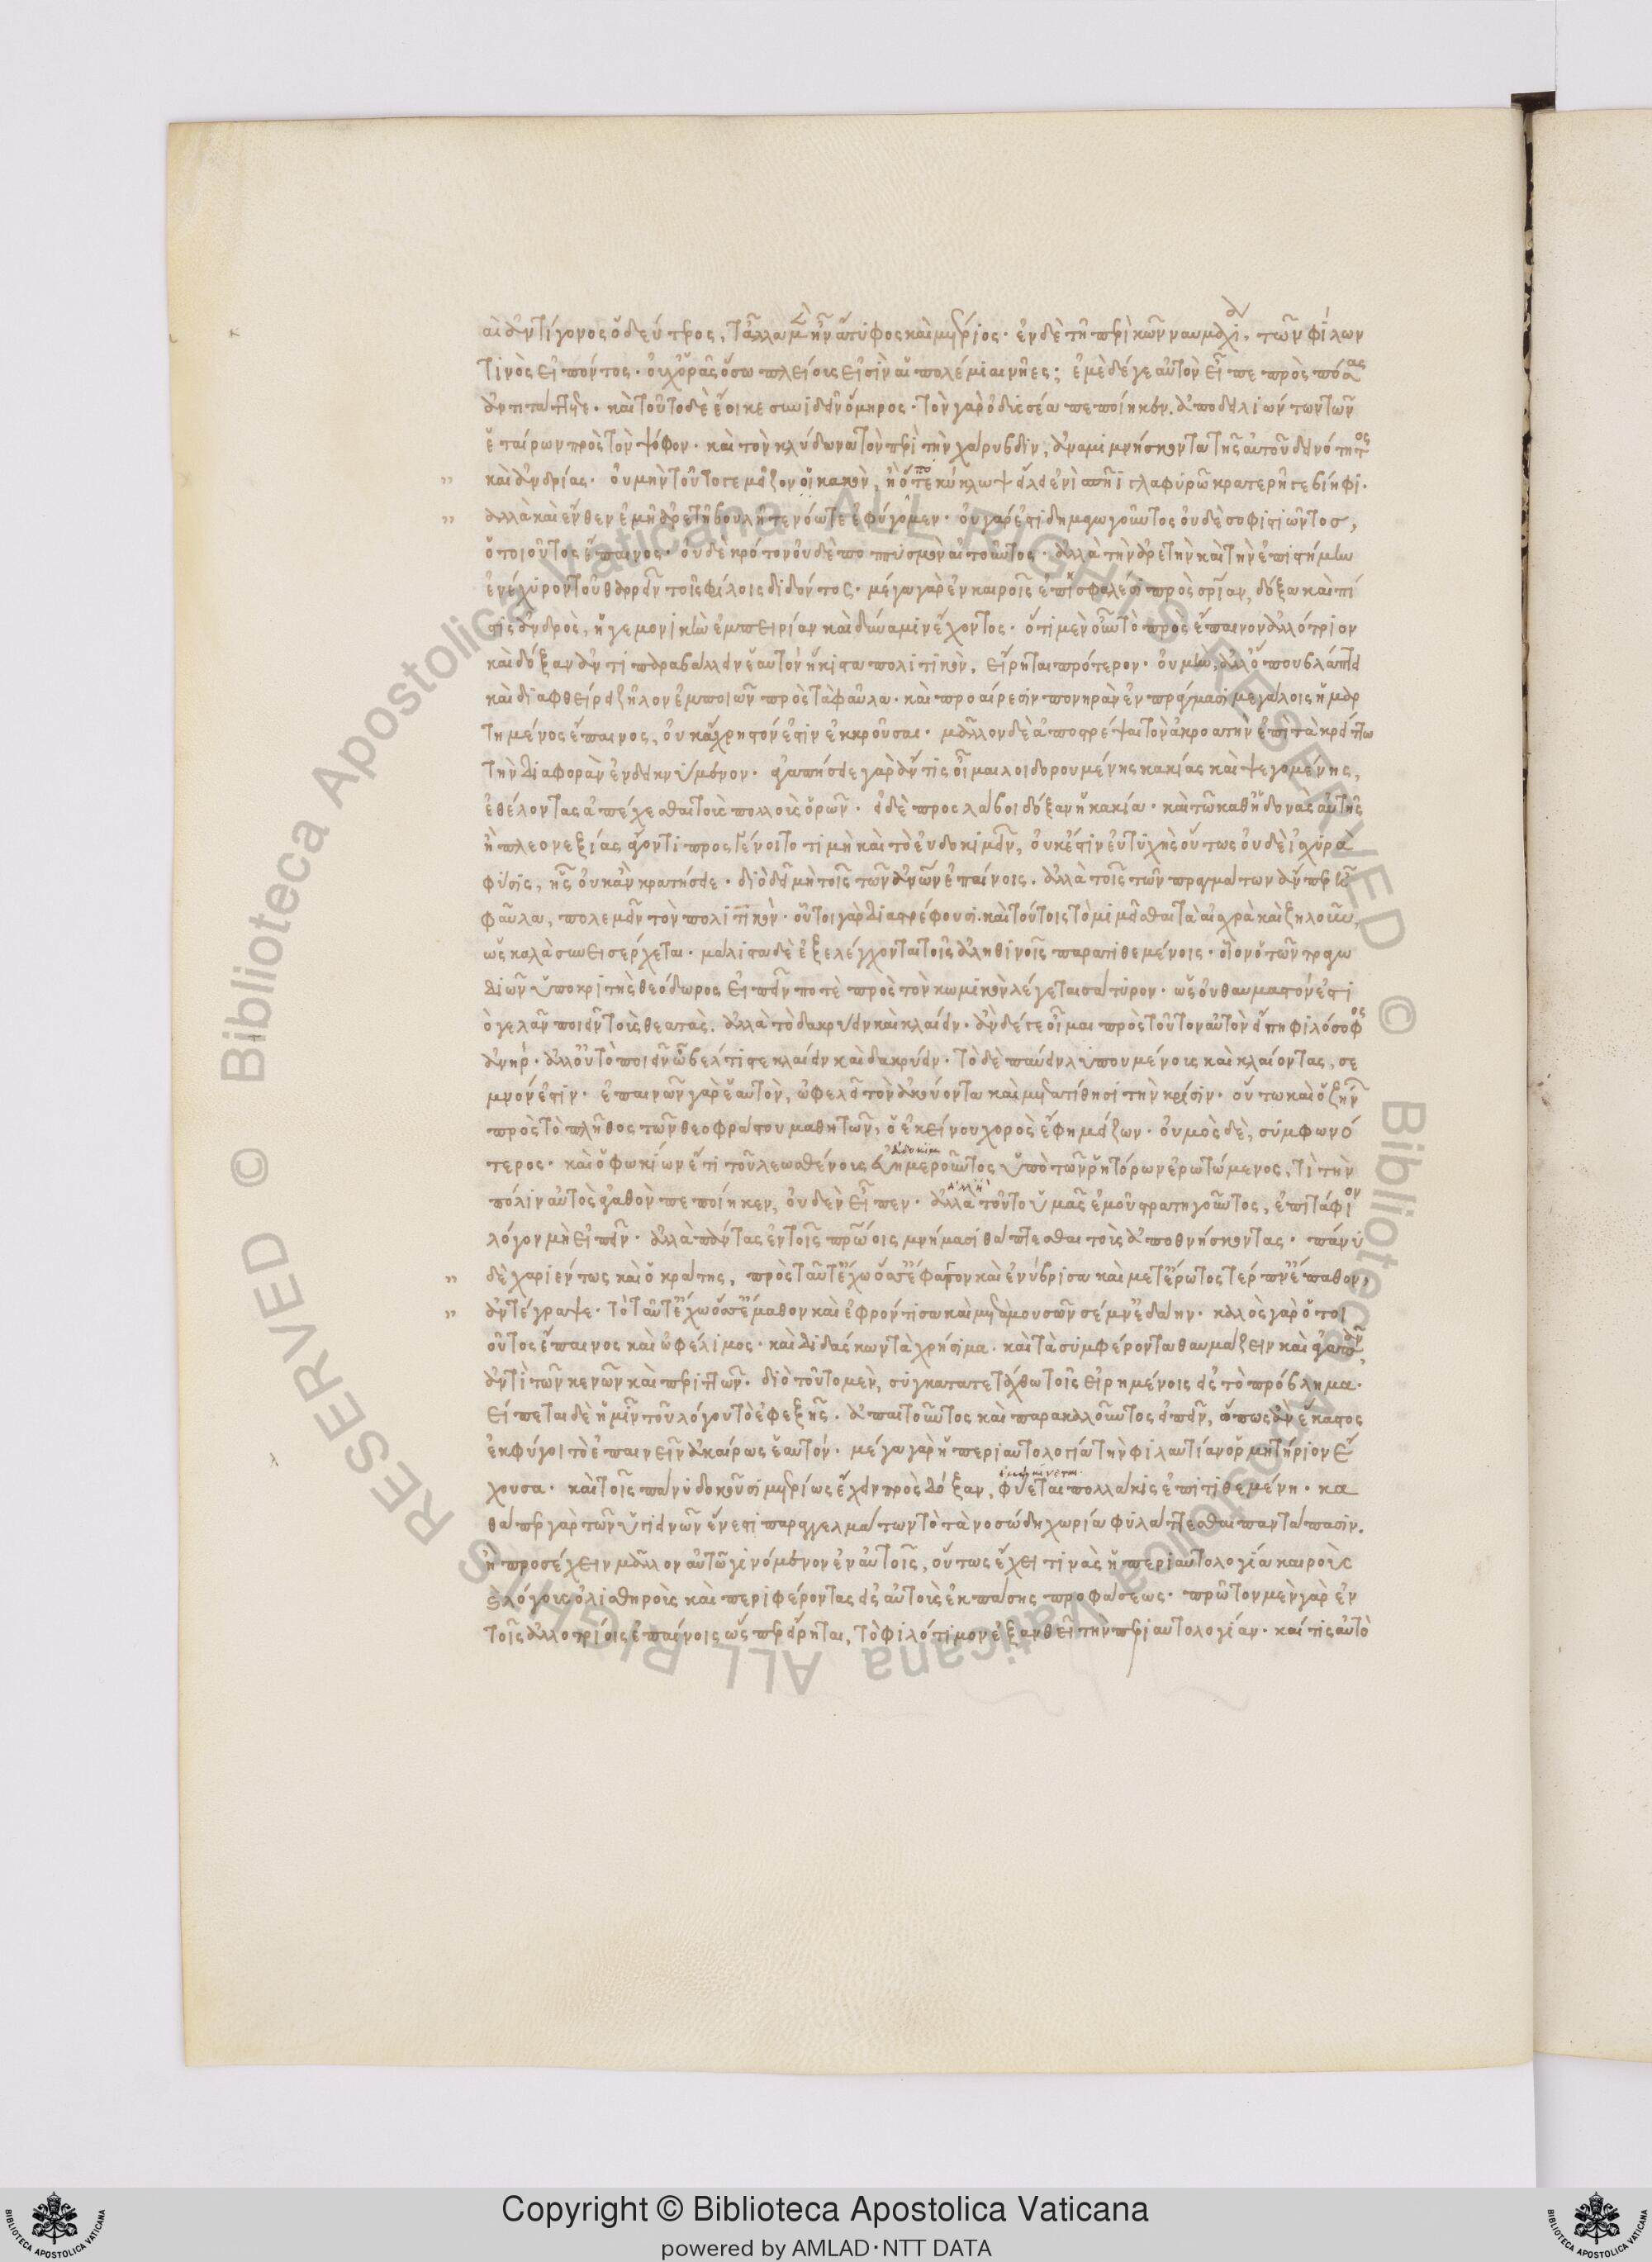 αὶ ἀντίγονος ὁ δεύτερος, τἄλλα μὲν ἦν ἄτυφος καὶ μέτριος· ἐν δὲ τῇ περὶ κῶν ναυμαχίᾳ, τῶν φίλων
τινὸς εἰπόντος· οὐχ ὁρᾷς ὅσῳ πλείους εἰσὶν αἱ πολέμιαι νῆες; ἐμὲ δέ γε αὐτὸν εἶπε πρὸς πόσας
ἀντιτάττετε· καὶ τοῦτο δὲ ἔοικε συνιδεῖν ὅμηρος· τὸν γὰρ ὀδυσσέα πεποίηκεν, ἀποδειλιώντων τῶν
ἑταίρων πρὸς τὸν ψόφον· καὶ τὸν κλύδωνα τὸν περὶ τὴν χάρυβδιν, ἀναμιμνήσκοντα τῆς αὐτοῦ δεινότητος
καὶ ἀνδρίας· οὐ μὴν τοῦτο γε μεῖζον κακὸν, ἢ ὅτε κύκλωψ εἴλει ἐνὶ σπῆι γλαφυρῷ κρατερῆφι βίηφι·
ἀλλὰ καὶ ἔνθεν ἐμῇ ἀρετῇ βουλῇ τε νόῳ τε ἐφύγομεν· οὐ γάρ ἐστι δημαγωγοῦντος οὐδὲ σοφιστιῶντος,
ὁ τοιοῦτος ἔπαινος· οὐδὲ κρότον οὐδὲ ποππυσμὸν αἰτοῦντος· ἀλλὰ τὴν ἀρετὴν καὶ τὴν ἐπιστήμην
ἐνέχυρον τοῦ θαρρεῖν τοῖς φίλοις διδόντος· μέγα γὰρ ἐν καιροῖς ἐπισφαλέσι πρὸς σωτηρίαν, δόξα καὶ πί
στις ἀνδρὸς, ἡγεμονικὴν ἐμπειρίαν καὶ δύναμιν ἔχοντος· ὅτι μὲν οὖν τὸ πρὸς ἔπαινον ἀλλότριον
καὶ δόξαν ἀντιπαραβάλλειν ἑαυτὸν ἥκιστα πολιτικὸν, εἴρηται πρότερον· οὐ μὴν, ἀλλ' ὅπου βλάπτει
καὶ διαφθείρει ζῆλον ἐμποιῶν πρὸς τὰ φαῦλα· καὶ προαίρεσιν πονηρὰν ἐν πράγμασι μεγάλοις ἡμαρ
τημένος ἔπαινος, οὐκ ἄχρηστόν ἐστιν ἐκκροῦσαι· μᾶλλον δὲ ἀποστρέψαι τὸν ἀκροατὴν ἐπὶ τὰ κρείττω
τὴν διαφορὰν ἐνδεικνύμενον· ἀγαπήσειε γὰρ ἄν τις οἶμαι λοιδορουμένης κακίας καὶ ψεγομένης,
ἐθέλοντας ἀπέχεσθαι τοὺς πολλοὺς ὁρῶν· εἰ δὲ προσλάβοι δόξαν ἡ κακία· καὶ τῷ καθ' ἡδονὰς αὐτῆς
ἢ πλεονεξίας ἄγοντι προσγένοιτο τιμὴ καὶ τὸ εὐδοκιμεῖν, οὐκ ἔστιν εὐτυχὴς οὕτως οὐδὲ ἰσχυρὰ
φύσις, ἧς οὐκ ἂν κρατήσειε· διὸ δεῖ μὴ τοῖς τῶν ἀνθρώπων ἐπαίνοις, ἀλλὰ τοῖς τῶν πραγμάτων ἄνπερ ᾖ
φαῦλα, πολεμεῖν τὸν πολιτικὸν· οὗτοι γὰρ διαστρέφουσι· καὶ τούτοις τὸ μιμεῖσθαι τὰ αἰσχρὰ καὶ ζηλοῦν,
ὡς καλὰ συνεισέρχεται· μάλιστα δὲ ἐξελέγχονται τοῖς ἀληθινοῖς παρατιθεμένοις· οἷον ὁ τῶν τραγω
διῶν ὑποκριτὴς θεόδωρος εἰπεῖν ποτὲ πρὸς τὸν κωμικὸν λέγεται σάτυρον· ὡς οὐ θαυμαστόν ἐστι
τὸ γελᾶν ποιεῖν τοὺς θεατὰς, ἀλλὰ τὸ δακρύειν καὶ κλαίειν· ἂν δέ γε οἶμαι πρὸς τοῦτον αὐτὸν εἴπῃ φιλόσοφος
ἀνὴρ· ἀλλ' οὐ τὸ ποιεῖν ὦ βέλτιστε κλαίειν καὶ δακρύειν· τὸ δὲ παύειν λυπουμένους καὶ κλαίοντας, σε
μνόν ἐστιν· ἐπαινῶν γὰρ ἑαυτὸν, ὠφελεῖ τὸν ἀκούοντα καὶ μετατίθησι τὴν κρίσιν· οὕτω καὶ ὁ ζήνων
πρὸς τὸ πλῆθος τῶν θεοφράστου μαθητῶν, ὁ ἐκείνου χορὸς ἔφη μείζων· οὑμὸς δὲ, συμφωνό
τερος· καὶ ὁ φωκίων ἔτι τοῦ λεωσθένους εὐημεροῦντος ὑπὸ τῶν ῥητόρων ἐρωτώμενος, τί τὴν
πόλιν αὐτὸς ἀγαθὸν πεποίηκεν, οὐδὲν εἶπεν· ἀλλὰ τοῦτο ὑμᾶς ἐμοῦ στρατηγοῦντος, ἐπιτάφιον
λόγον μὴ εἰπεῖν· ἀλλὰ πάντας ἐν τοῖς πατρῴοις μνήμασι θάπτεσθαι τοὺς ἀποθνήσκοντας· πάνυ
δὲ χαριέντως καὶ ὁ κράτης, πρὸς ταῦτ' ἔχω ὅσσ' ἔφαγον καὶ ἐνύβρισα καὶ μετ' ἔρωτος τέρπν' ἔπαθον,
ἀντέγραψε· τὸ ταῦτ' ἔχω ὅσσ' ἔμαθον καὶ ἐφρόντισα καὶ μετὰ μουσῶν σέμν' ἐδάην· καλὸς γὰρ ὁ τοι
οῦτος ἔπαινος καὶ ὠφέλιμος· καὶ διδάσκων τὰ χρήσιμα· καὶ τὰ συμφέροντα θαυμάζειν καὶ ἀγαπᾶν,
ἀντὶ τῶν κενῶν καὶ περιττῶν· διὸ τοῦτο μὲν, συγκατατετάχθω τοῖς εἰρημένοις εἰς τὸ πρόβλημα·
λείπεται δὲ ἡμῖν τοῦ λόγου τὸ ἐφεξῆς· ἀπαιτοῦντος καὶ παρακαλοῦντος εἰπεῖν, ὅπως ἂν ἕκαστος
ἐκφύγοι τὸ ἐπαινεῖν ἀκαίρως ἑαυτόν· μέγα γὰρ ἡ περιαυτολογία τὴν φιλαυτίαν ὁρμητήριον ἔ
χουσα· καὶ τοῖς πάνυ δοκοῦσι μετρίως ἔχειν πρὸς δόξαν, φύεται πολλάκις ἐπιτιθεμένη· κα
θάπερ γὰρ τῶν ὑγιεινῶν ἕν ἐστι παραγγελμάτων τὸ τὰ νοσώδη χωρία φυλάττεσθαι παντάπασιν,
ἢ προσέχειν μᾶλλον αὑτῷ γινόμενον ἐν αὐτοῖς, οὕτως ἔχει τινὰς ἡ περιαυτολογία καιροὺς
καὶ λόγους ὀλισθηροὺς καὶ περιφέροντας εἰς αὐτοὺς ἐκ πάσης προφάσεως· πρῶτον μὲν γὰρ ἐν
τοῖς ἀλλοτρίοις ἐπαίνοις ὥσπερ εἴρηται, τὸ φιλότιμον ἐξανθεῖ τὴν περιαυτολογίαν· καί τις αὐτὸ
Copyright © Biblioteca Apostolica Vaticana
powered by AMLAD·NTT DATA